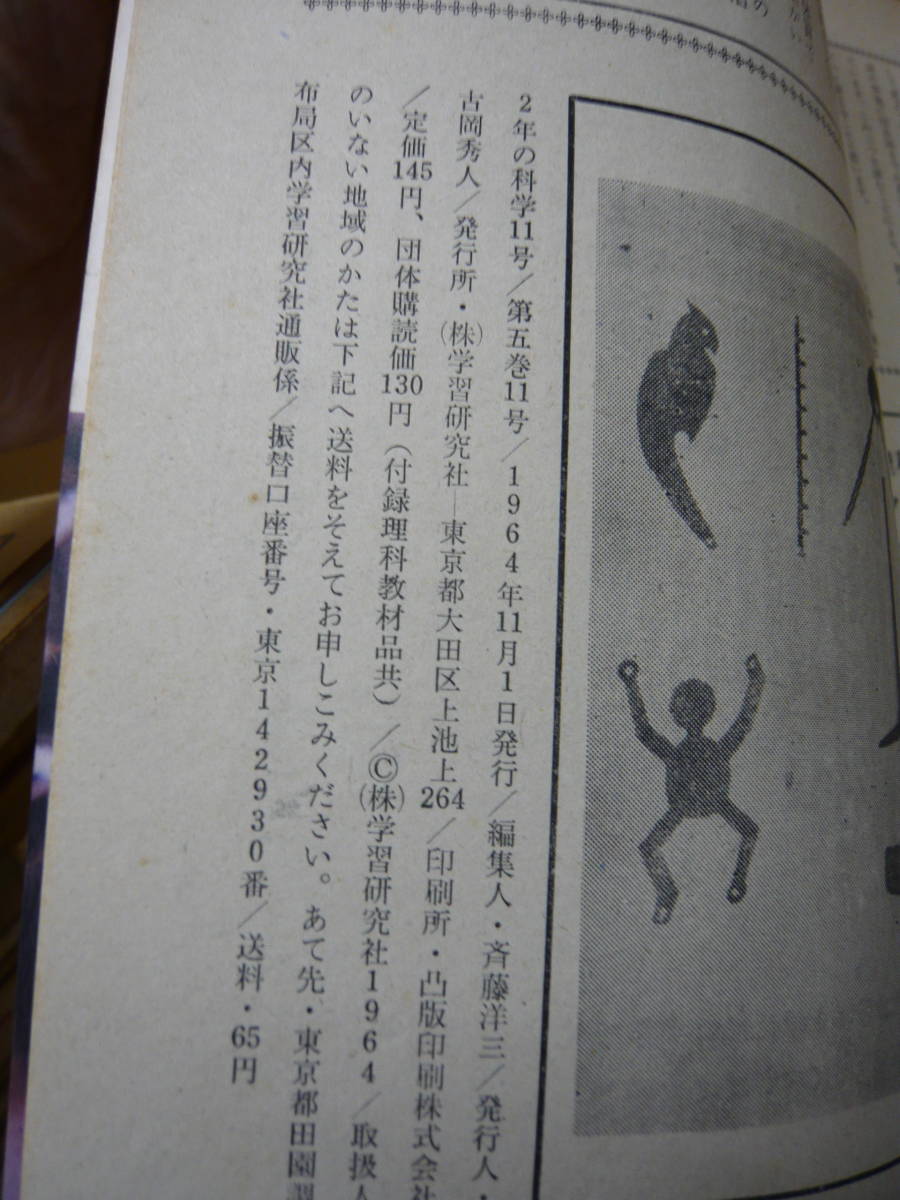 2年の科学11号/第五巻11号/1964年11月1日発行/編集人・斉藤洋三/発行人・
古岡秀人/発行所・(株)学習研究社―東京都大田区上池上264/印刷所・凸版印刷株式会社
/定価145円、団体購読価130円(付録理科教材品共)/©(株)学習研究社1964/取扱人
のいない地域のかたは下記へ送料をそえてお申しこみください。あて先・東京都田園調
布局区内学習研究社通販係/振替口座番号・東京142930番/送料・65円